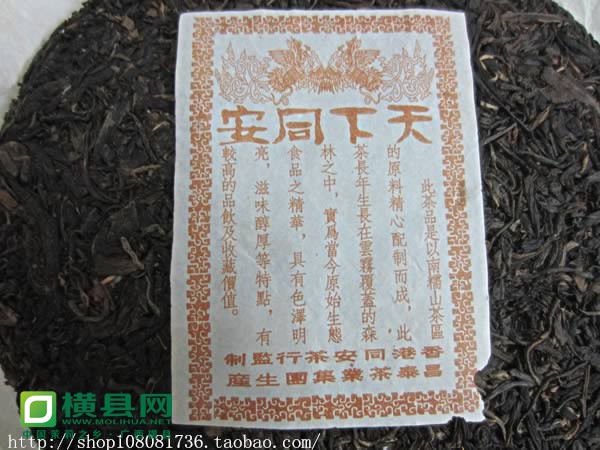 天下同安
此茶品是以南糯山茶區
的原料精心配制而成，此
茶長年生長在雲霧覆蓋的森
林之中，實爲當今原始生態
食品之精華，具有色澤明
亮、滋味醇厚等特點，有
較高的品飲及收藏價值。
香港同安茶行監制
昌泰茶業集團生産
横县网
WWW.MOLIHUA.NET
中国茉莉之乡·广西横县
http://shop108081736.taobao.com/